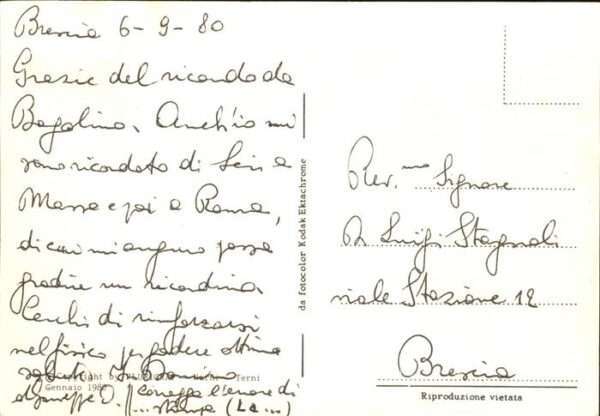 Brescia 6-9-80
Grazie del ricordo da
Bagolino. Anch'io mi
sono ricordato di Lei a
Massa e poi a Roma,
di cui mi auguro possa
gradire un ricordino.
Cerchi di rinforzarsi
nel fisico per godere ottima
salute.
Copyright by
Terni
Gennaio 198
Giuseppe D. (corregga l'errore di
...stampa (La...)
da fotocolor Kodak Ektachrome
Rev.mo Signore
D. Luigi Stagnoli
viale Stazione 12
Brescia
Riproduzione vietata